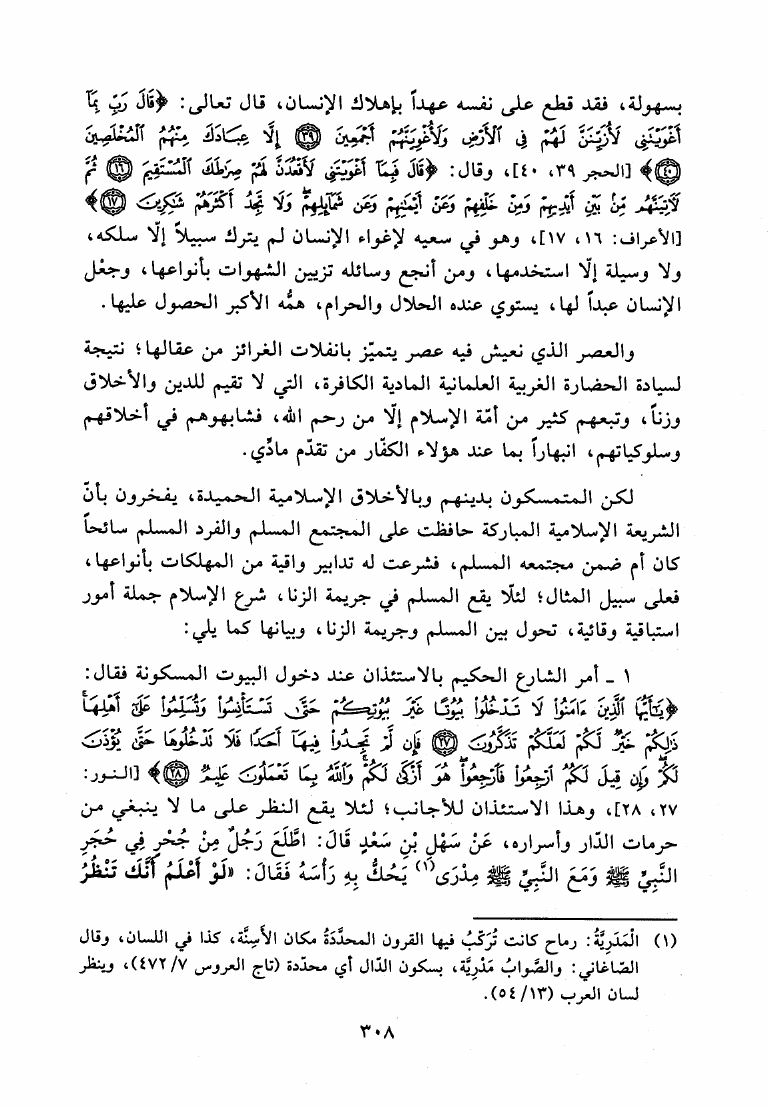 بسهولة، فقد قطع على نفسه عهداً بإهلاك الإنسان، قال تعالى: ﴿قَالَ رَبِّ بِمَآ
أَغْوَيْتَنِي لَأُزَيِّنَنَّ لَهُمْ فِي ٱلْأَرْضِ وَلَأُغْوِيَنَّهُمْ أَجْمَعِينَ ﴿٣٩﴾ إِلَّا عِبَادَكَ مِنْهُمُ ٱلْمُخْلَصِينَ
﴿٤٠﴾﴾ [الحجر ٣٩، ٤٠]، وقال: ﴿قَالَ فَبِمَآ أَغْوَيْتَنِي لَأَقْعُدَنَّ لَهُمْ صِرَٰطَكَ ٱلْمُسْتَقِيمَ ﴿١٦﴾ ثُمَّ
لَأَتِيَنَّهُم مِّنۢ بَيْنِ أَيْدِيهِمْ وَمِنْ خَلْفِهِمْ وَعَنْ أَيْمَٰنِهِمْ وَعَن شَمَآئِلِهِمْ ۖ وَلَا تَجِدُ أَكْثَرَهُمْ شَٰكِرِينَ ﴿١٧﴾﴾
[الأعراف: ١٦، ١٧]، وهو في سعيه لإغواء الإنسان لم يترك سبيلاً إلّا سلكه،
ولا وسيلة إلّا استخدمها، ومن أنجع وسائله تزيين الشهوات بأنواعها، وجعْل
الإنسان عبداً لها، يستوي عنده الحلال والحرام، همُّه الأكبر الحصول عليها.
والعصر الذي نعيش فيه عصر يتميّز بانفلات الغرائز من عقالها؛ نتيجة
لسيادة الحضارة الغربية العلمانية المادية الكافرة، التي لا تقيم للدين والأخلاق
وزناً، وتبعهم كثير من أمّة الإسلام إلّا من رحم الله، فشابهوهم في أخلاقهم
وسلوكياتهم، انبهاراً بما عند هؤلاء الكفّار من تقدّم مادّي.
لكن المتمسكون بدينهم وبالأخلاق الإسلامية الحميدة، يفخرون بأنّ
الشريعة الإسلامية المباركة حافظت على المجتمع المسلم والفرد المسلم سائحاً
كان أم ضمن مجتمعه المسلم، فشرعت له تدابير واقية من المهلكات بأنواعها،
فعلى سبيل المثال؛ لئلّا يقع المسلم في جريمة الزنا، شرع الإسلام جملة أمور
استباقية وقائية، تحول بين المسلم وجريمة الزنا، وبيانها كما يلي:
١ ـ أمر الشارع الحكيم بالاستئذان عند دخول البيوت المسكونة فقال:
﴿يَٰٓأَيُّهَا ٱلَّذِينَ ءَامَنُوا۟ لَا تَدْخُلُوا۟ بُيُوتًا غَيْرَ بُيُوتِكُمْ حَتَّىٰ تَسْتَأْنِسُوا۟ وَتُسَلِّمُوا۟ عَلَىٰٓ أَهْلِهَا ۚ
ذَٰلِكُمْ خَيْرٌ لَّكُمْ لَعَلَّكُمْ تَذَكَّرُونَ ﴿٢٧﴾ فَإِن لَّمْ تَجِدُوا۟ فِيهَآ أَحَدًا فَلَا تَدْخُلُوهَا حَتَّىٰ يُؤْذَنَ
لَكُمْ ۖ وَإِن قِيلَ لَكُمُ ٱرْجِعُوا۟ فَٱرْجِعُوا۟ ۖ هُوَ أَزْكَىٰ لَكُمْ ۚ وَٱللَّهُ بِمَا تَعْمَلُونَ عَلِيمٌ ﴿٢٨﴾﴾ [النور:
٢٧، ٢٨]، وهذا الاستئذان للأجانب؛ لئلا يقع النظر على ما لا ينبغي من
حرمات الدّار وأسراره، عَنْ سَهْلِ بْنِ سَعْدٍ قَالَ: اطَّلَعَ رَجُلٌ مِنْ جُحْرٍ فِي حُجَرِ
النَّبِيِّ ﷺ وَمَعَ النَّبِيِّ ﷺ مِدْرَى(١) يَحُكُّ بِهِ رَأْسَهُ فَقَالَ: «لَوْ أَعْلَمُ أَنَّكَ تَنْظُرُ
(١) الْمَدَرِيَّةُ: رماح كانت تُرَكَّبُ فيها القرون المحدَّدَةُ مكان الأسِنَّة، كذا في اللسان، وقال
الصّاغاني: والصَّوابُ مَدْرِيَّة، بسكون الدّال أي محدّدة (تاج العروس ٧/ ٤٧٢)، وينظر
لسان العرب (١٣/ ٥٤).
٣٠٨